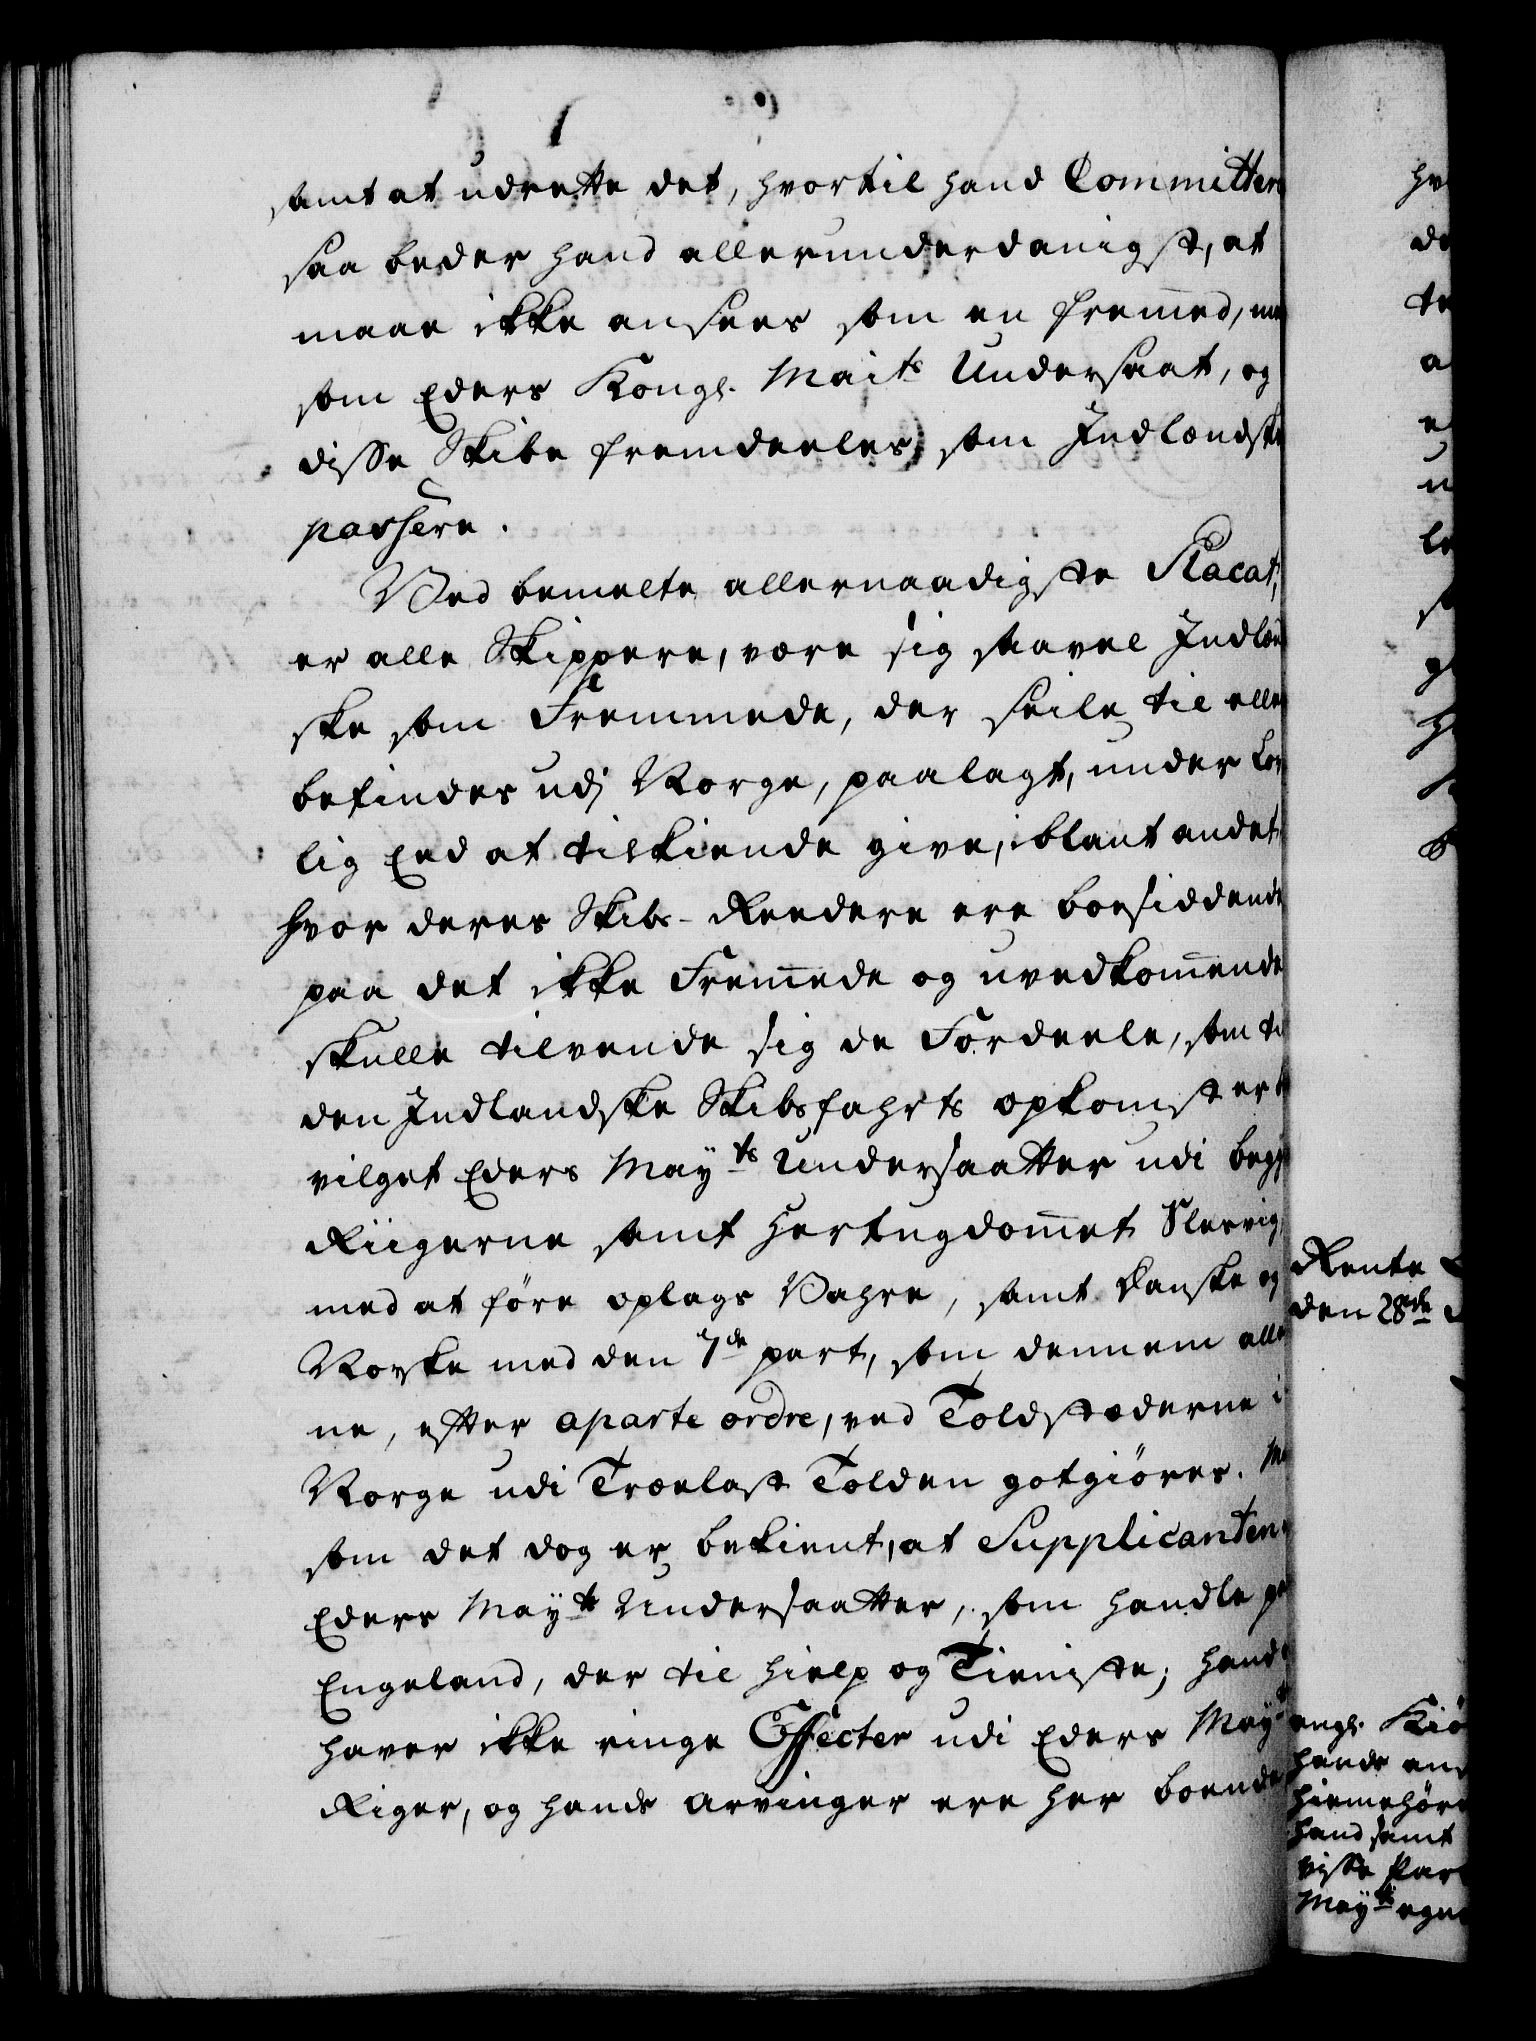 samt at udrette det, hvortil hand Committer
saa beder hand allerunderdanigst, at
maae ikke ansees som en fremed,
som Eders Kongl. Maits Undersaat, og
disse Skibe fremdeeles som Indlændsk
passere.
Ved bemelte allernaadigste Placat,
er alle Skippere, være sig saavel Indlæn
ske som Fremmede, der seile til elle
befindes udj Norge, paalagt, under Lov
lig Eed at tilkiende give, iblant andet
hvor deres Skibs-Reedere ere boesiddende
paa det ikke Fremede og uvedkomende
skulle tilvende sig de Fordeele, som ti
den Indlandske Skibsfahrts opkomst er
vilget Eders Mayts Undersaatter udi begge
Riigerne samt Hertugdomet Slesvig,
med at føre oplags Vahre, samt Danske og
Norske med den 7de part, som dennem alle
ne, efter aparte ordre, ved Toldstæderne i
Norge udi Trælast Tolden gotgiøres. Me
som det dog er bekient, at Supplicanten
Eders Mayts Undersaatter, som handle
Engeland, der til hielp og Tieniste; hand
haver ikke ringe Effecter udi Eders May
Riger, og hands Arvinger ere her boende
Rente
den 28de
engl. Kiø
hands
hiemehøre
hand samt
visse Par
Mayts egne